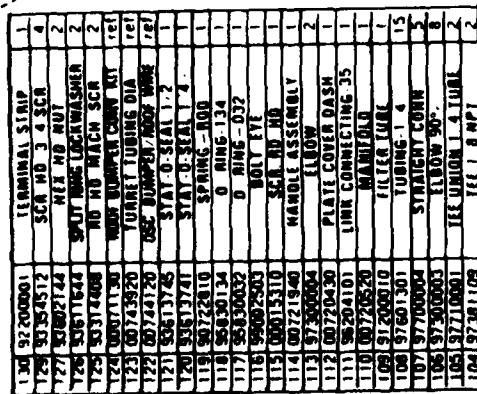 130 92200001 TERMINAL STRIP 1
129 93354512 SCR HD 3 4 SCR 4
127 93802144 HEX HD NUT 2
126 93611644 SPLIT RING LOCKWASHER 2
125 93314408 RD HD MACH SCR 2
124 00071130 ROOF BUMPER CONV KIT ref
123 00743920 TURRET TUBING DIA ref
122 00744120 OSC BUMPER/ROOF WIRE ref
121 93613745 STAT-O-SEAL 1-2 1
120 93613741 STAT-O-SEAL 1-4 1
119 90722810 SPRING - ROD 1
118 95830134 O RING-134 1
117 95830032 O RING-032 1
116 99002503 BOLT EYE 1
115 00015310 SCR RD HD 1
114 00721940 HANDLE ASSEMBLY 1
113 97300004 ELBOW 2
112 00720430 PLATE COVER DASH 1
111 96204101 LINK CONNECTING-35 1
110 00720520 MANIFOLD 1
109 97200010 FILTER TUBE 1
108 97601301 TUBING-1 4 15
107 97700004 STRAIGHT CONN 5
106 97300003 ELBOW 90°. 8
105 97710001 TEE UNION 1 4 TUBE 2
104 97381109 TEE 1 8 NPT 2